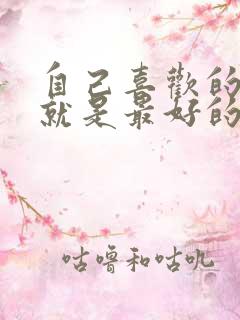 自己喜歡的
就是最好的
咕嚕和咕叽